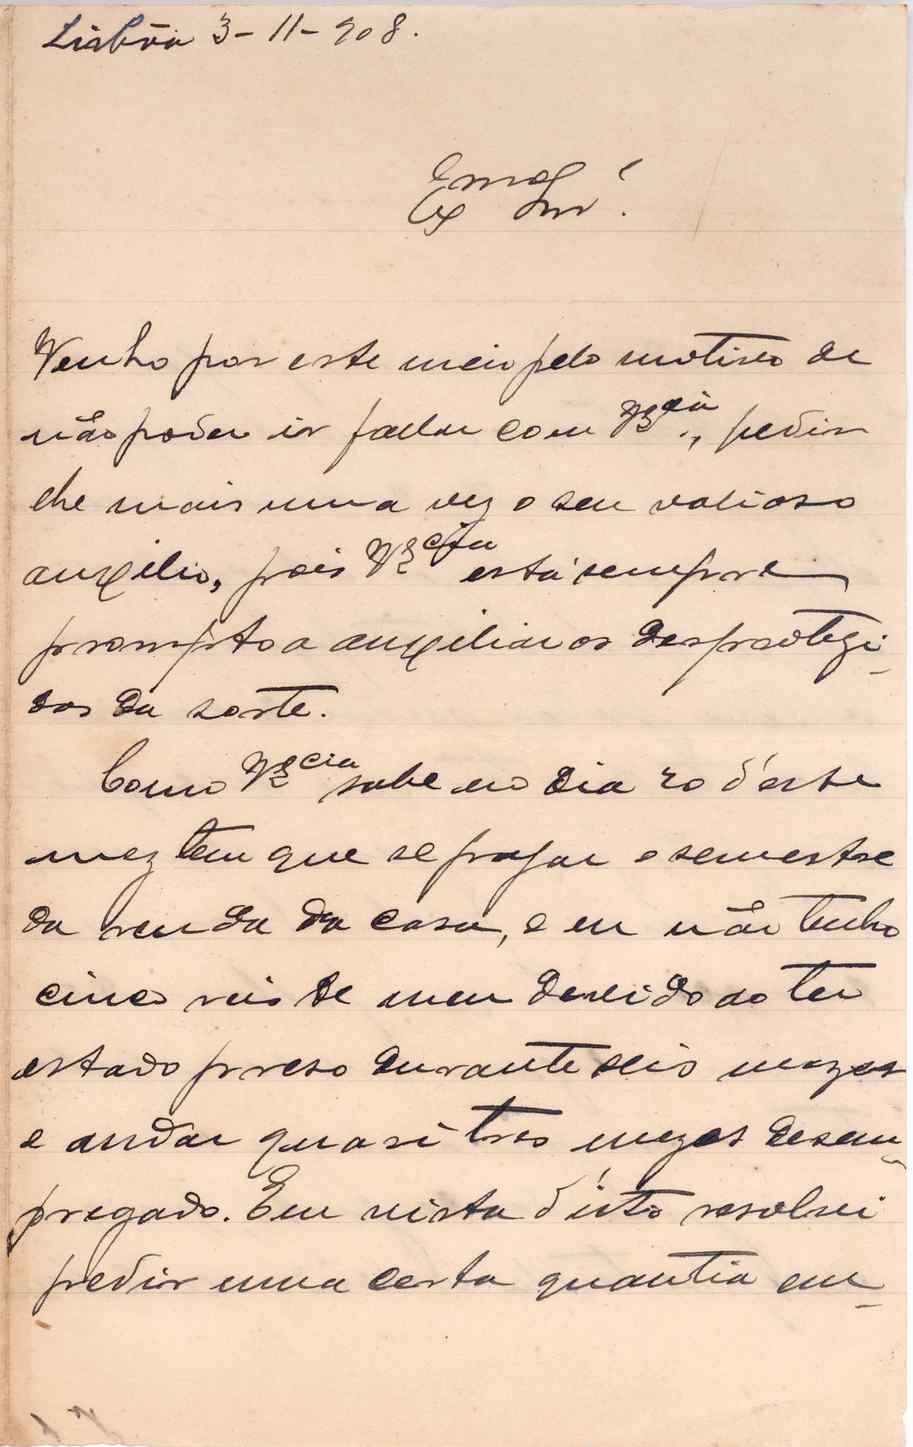 Lisbôa 3-11-908.
Exmo Snr.
Venho por este meio pelo motivo de
não poder ir fallar com V. Ex.cia, pedir
lhe mais uma vez o seu valioso
auxilio, pois V. Ex.cia está sempre
prompto a auxiliar os desprotegi-
dos da sorte.
Como V. Ex.cia sabe no dia 20 d'este
mez tem que se pagar o semestre
da renda da casa, e eu não tenho
cinco reis de meu devido ao ter
estado preso durante seis mezes
e andar quasi tres mezes desem-
pregado. Em vista d'isto resolvi
pedir uma certa quantia em-